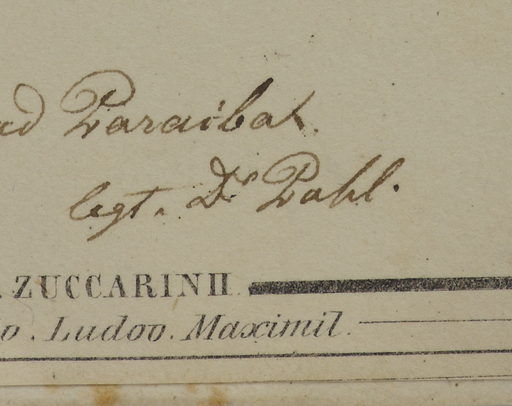 ad Paraiba
legt. Dr Pohl.
ZUCCARINII
o. Ludov. Maximil